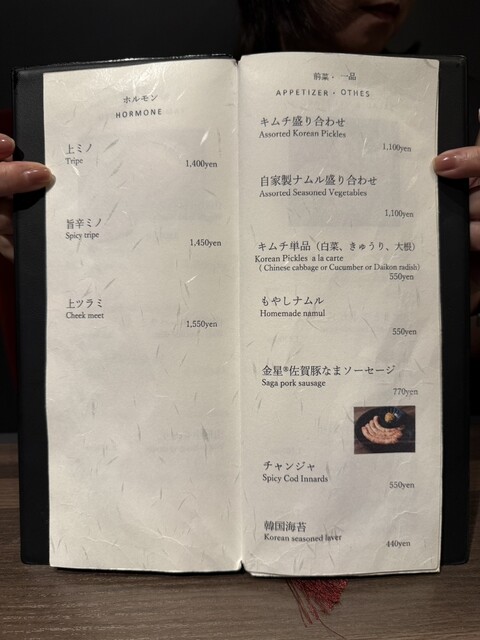 ホルモン
HORMONE
上ミノ
Tripe
1,400yen
旨辛ミノ
Spicy tripe
1,450yen
上ツラミ
Cheek meet
1,550yen
前菜・一品
APPETIZER・OTHES
キムチ盛り合わせ
Assorted Korean Pickles
1,100yen
自家製ナムル盛り合わせ
Assorted Seasoned Vegetables
1,100yen
キムチ単品（白菜、きゅうり、大根）
Korean Pickles a la carte
( Chinese cabbage or Cucumber or Daikon radish)
550yen
もやしナムル
Homemade namul
550yen
金星®佐賀豚なまソーセージ
Saga pork sausage
770yen
チャンジャ
Spicy Cod Innards
550yen
韓国海苔
Korean seasoned laver
440yen